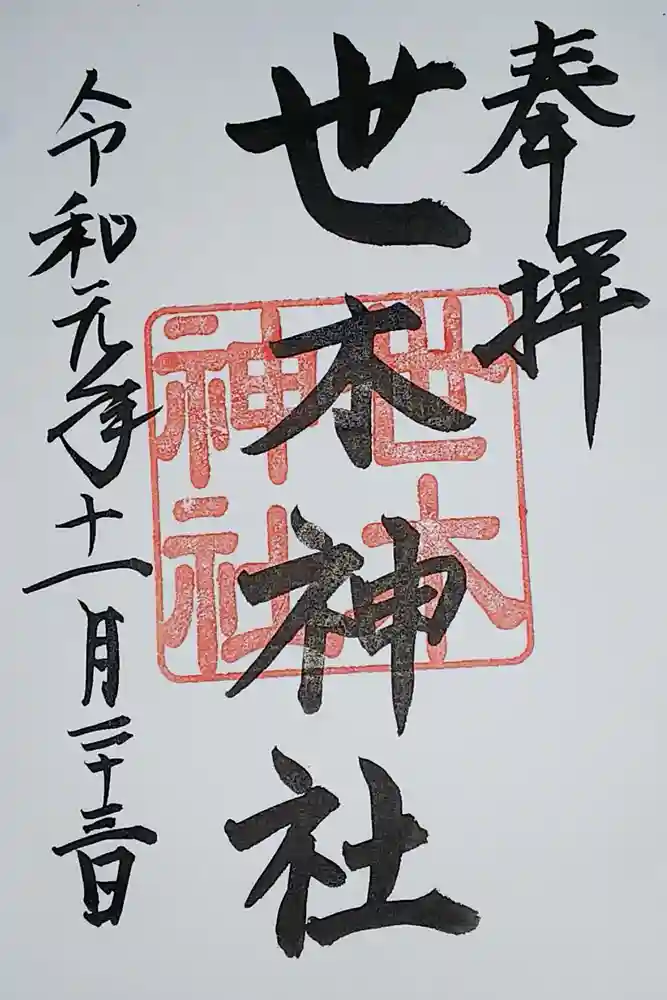 奉拝
世木神社
世木
神社
令和元年十一月二十三日